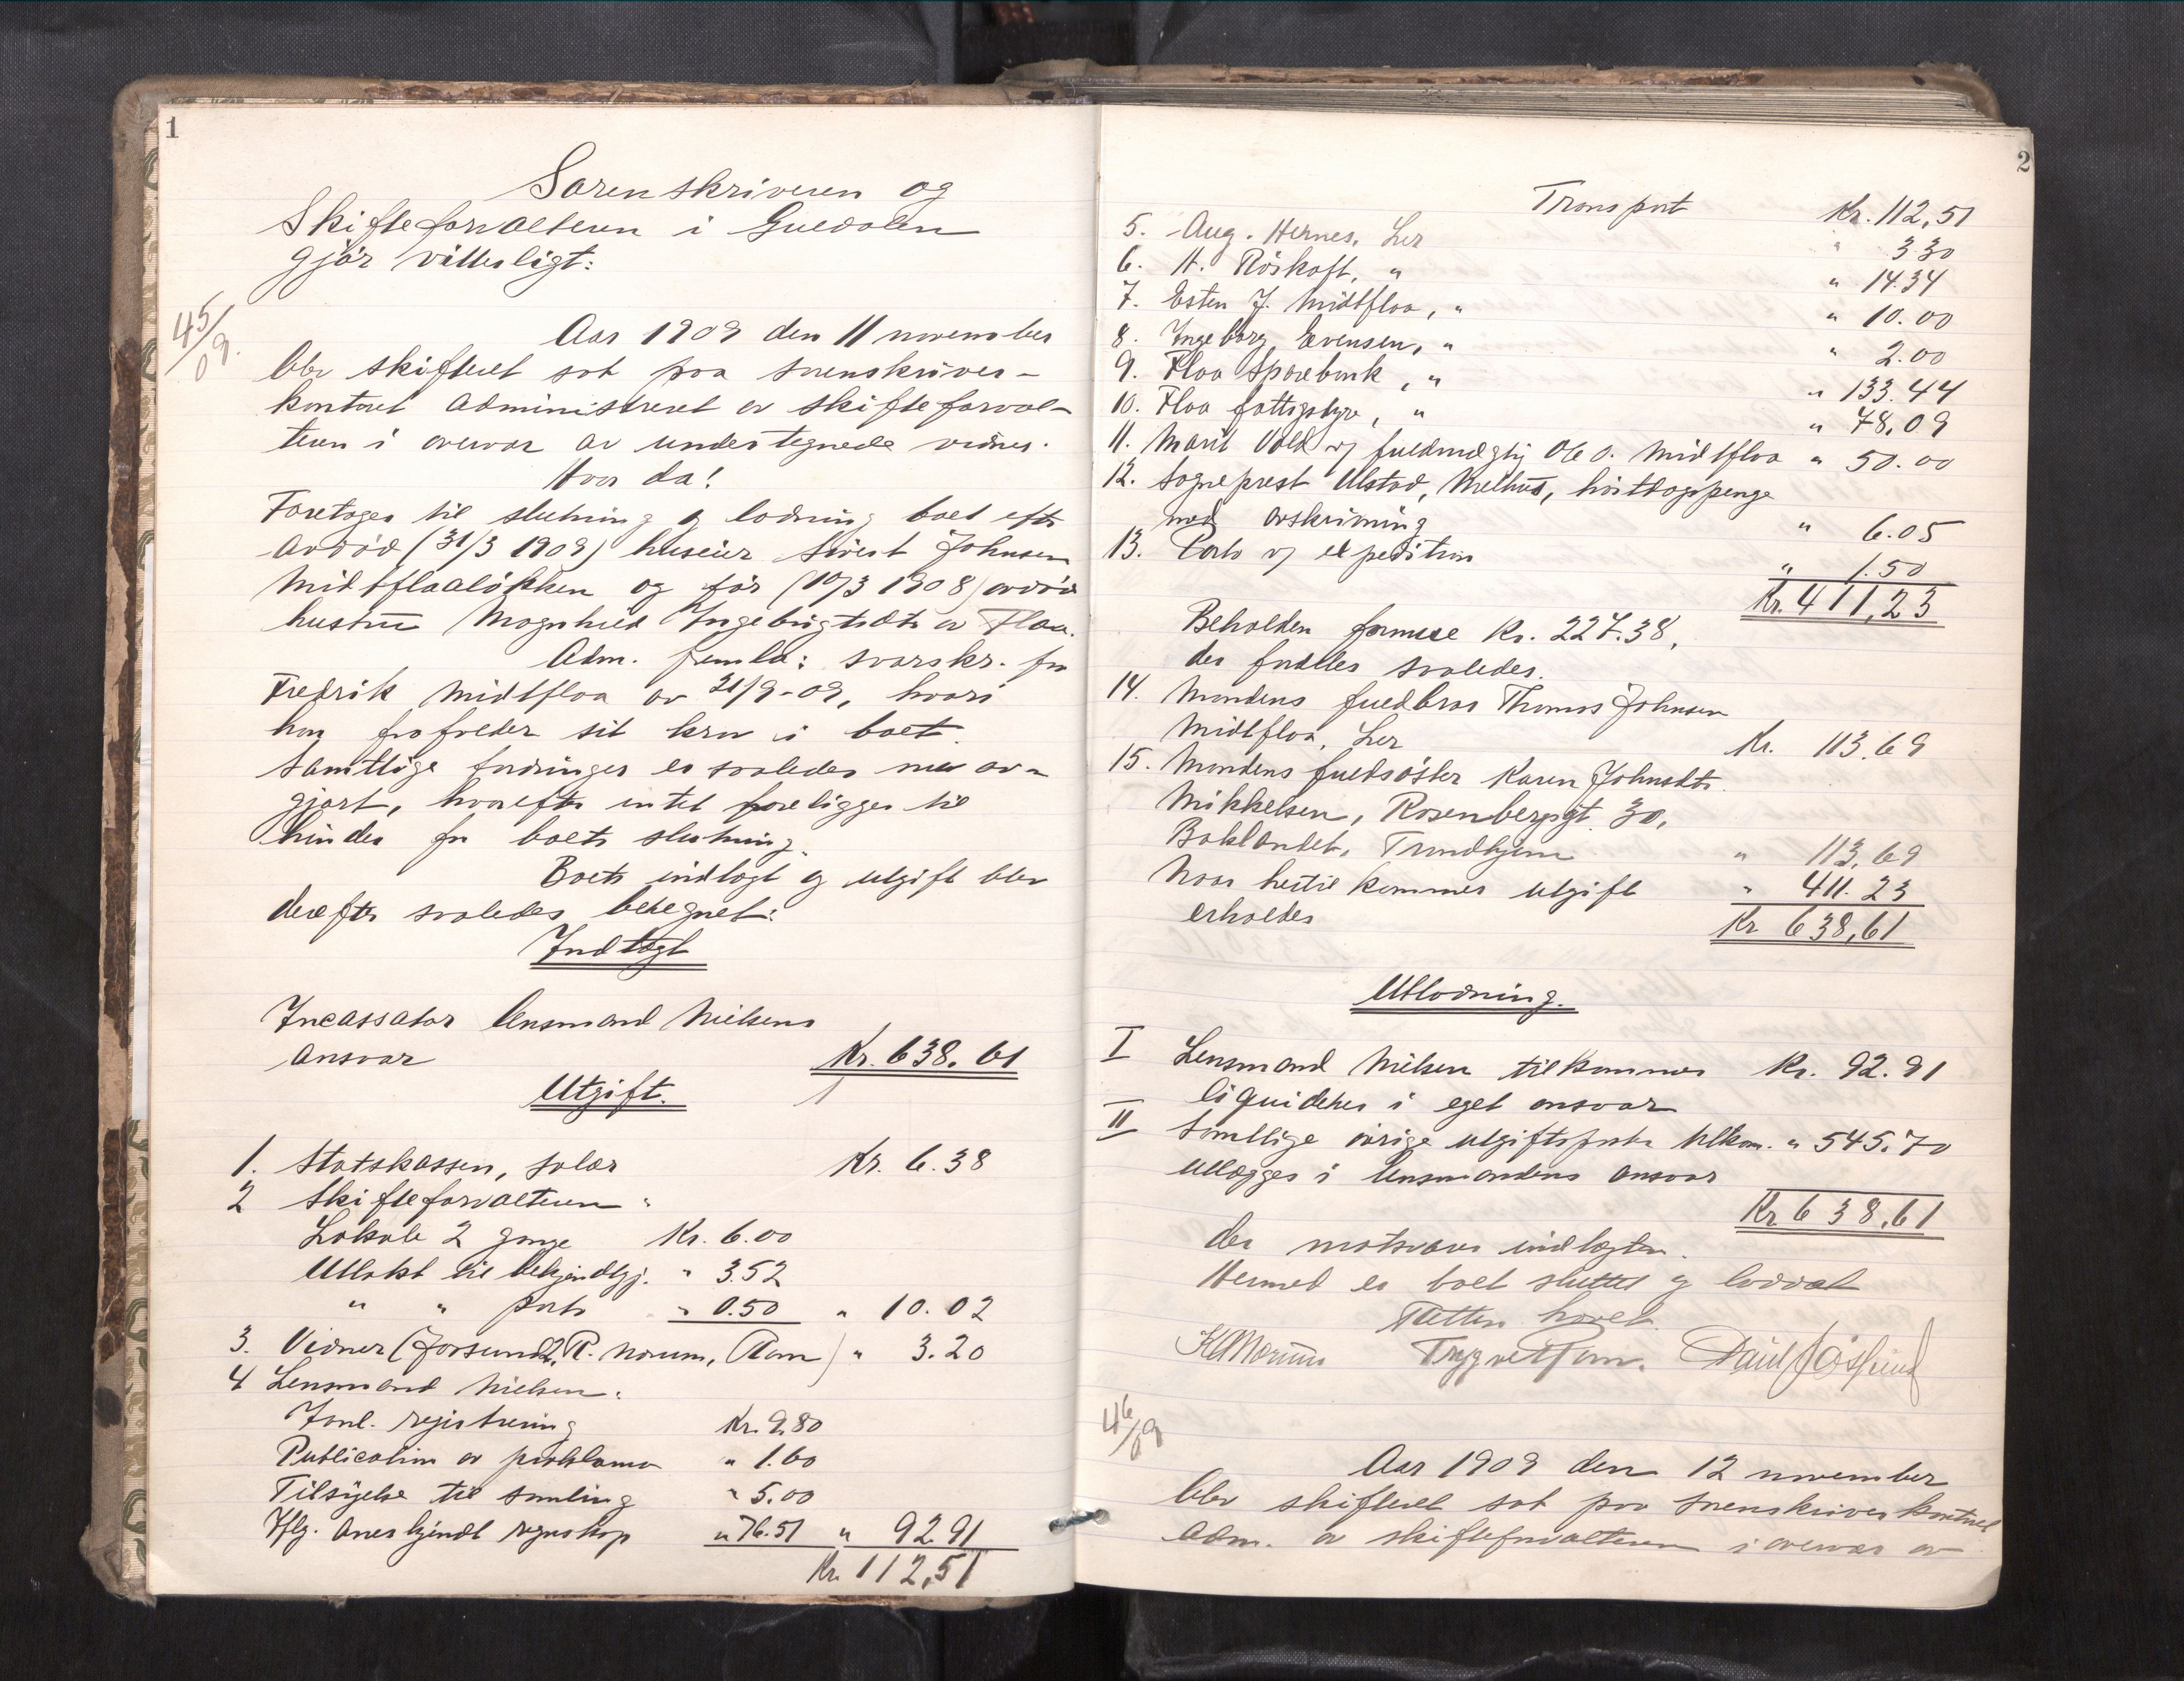 1
Sorenskriveren og
Skifteforvalteren i Guldalen
gjør vitterligt:
45/09.
Aar 1909 den 11 november
blev skifteret sat paa sorenskriver-
kontoret administreret av skifteforval-
teren i overvær av undertegnede vidner.
Hvor da!
Foretages til slutning og lodning boet efter
avdød (31/3 1909) huseier Sivert Johnsen
Midtflaaløkken og før (10/3 1908) avdøde
hustru Magnhild Ingebrigtsdtr av Flaa.
Adm. fremla: svarskr. fra
Fredrik Midtflaa av 21/9-09, hvori
han frafalder sit krav i boet.
Samtlige fordringer er saaledes nu av-
gjort, hvorefter intet foreligger til
hinder for boets slutning.
Boets indtægt og utgift blev
derefter saaledes beregnet:
Indtægt
Incassator lensmand Nielsens
ansvar Kr. 638.61
Utgift.
1. Statskassen, salær Kr. 6.38
2 Skifteforvalteren:
Lokale 2 gange Kr. 6.00
Utlakt til bekjendtgj. " 3.52
" " porto " 0.50 " 10.02
3. Vidner (Jøssund 2, R. Norum, Ram) " 3.20
4 Lensmand Nielsen:
Forel. registrering Kr. 9.80
Publication av proklama " 1.60
Tilsigelse til samling " 5.00
Iflg. anerkjendt regnskap " 76.51 " 92.91
Kr. 112,51
2
Transport Kr. 112,51
5. Aug. Hernes, Ler " 3.30
6. H. Röskaft, " " 14.34
7. Esten J. Midtflaa, " " 10.00
8. Ingeborg Evensen, " " 2.00
9. Flaa Sparebank, " " 133.44
10. Flaa fattigstyre, " " 78,09
11. Marit Vold v/ fuldmægtig Ole O. Midtflaa " 50.00
12. Sogneprest Ulstad, Melhus, høitidspenge
med avskrivning " 6.05
13. Porto v/ expedition " 1.50
Kr. 411,23
Beholden formue Kr. 227.38,
der fordeles saaledes.
14. Mandens fuldbror Thomas Johnsen
Midtflaa, Ler Kr. 113.69
15. Mandens fuldsøster Karen Johnsdtr.
Mikkelsen, Rosenbergsgt. 30,
Baklandet, Trondhjem " 113,69
Naar hertil kommer utgift " 411.23
erholdes Kr 638,61
Utlodning.
I Lensmand Nielsen tilkommer Kr. 92.91
liquideres i eget ansvar
II Samtlige øvrige utgiftsposter tilkom. " 545.70
utlægges i lensmandens ansvar
Kr 638,61
der motsvarer indtægten.
Hermed er boet sluttet og loddet
Retten hævet.
K A Norum Trygve Ram. Paul Jøssund
46/09
Aar 1909 den 12 november
blev skifteret sat paa sorenskriverkontoret
adm. av skifteforvalteren i overvær av